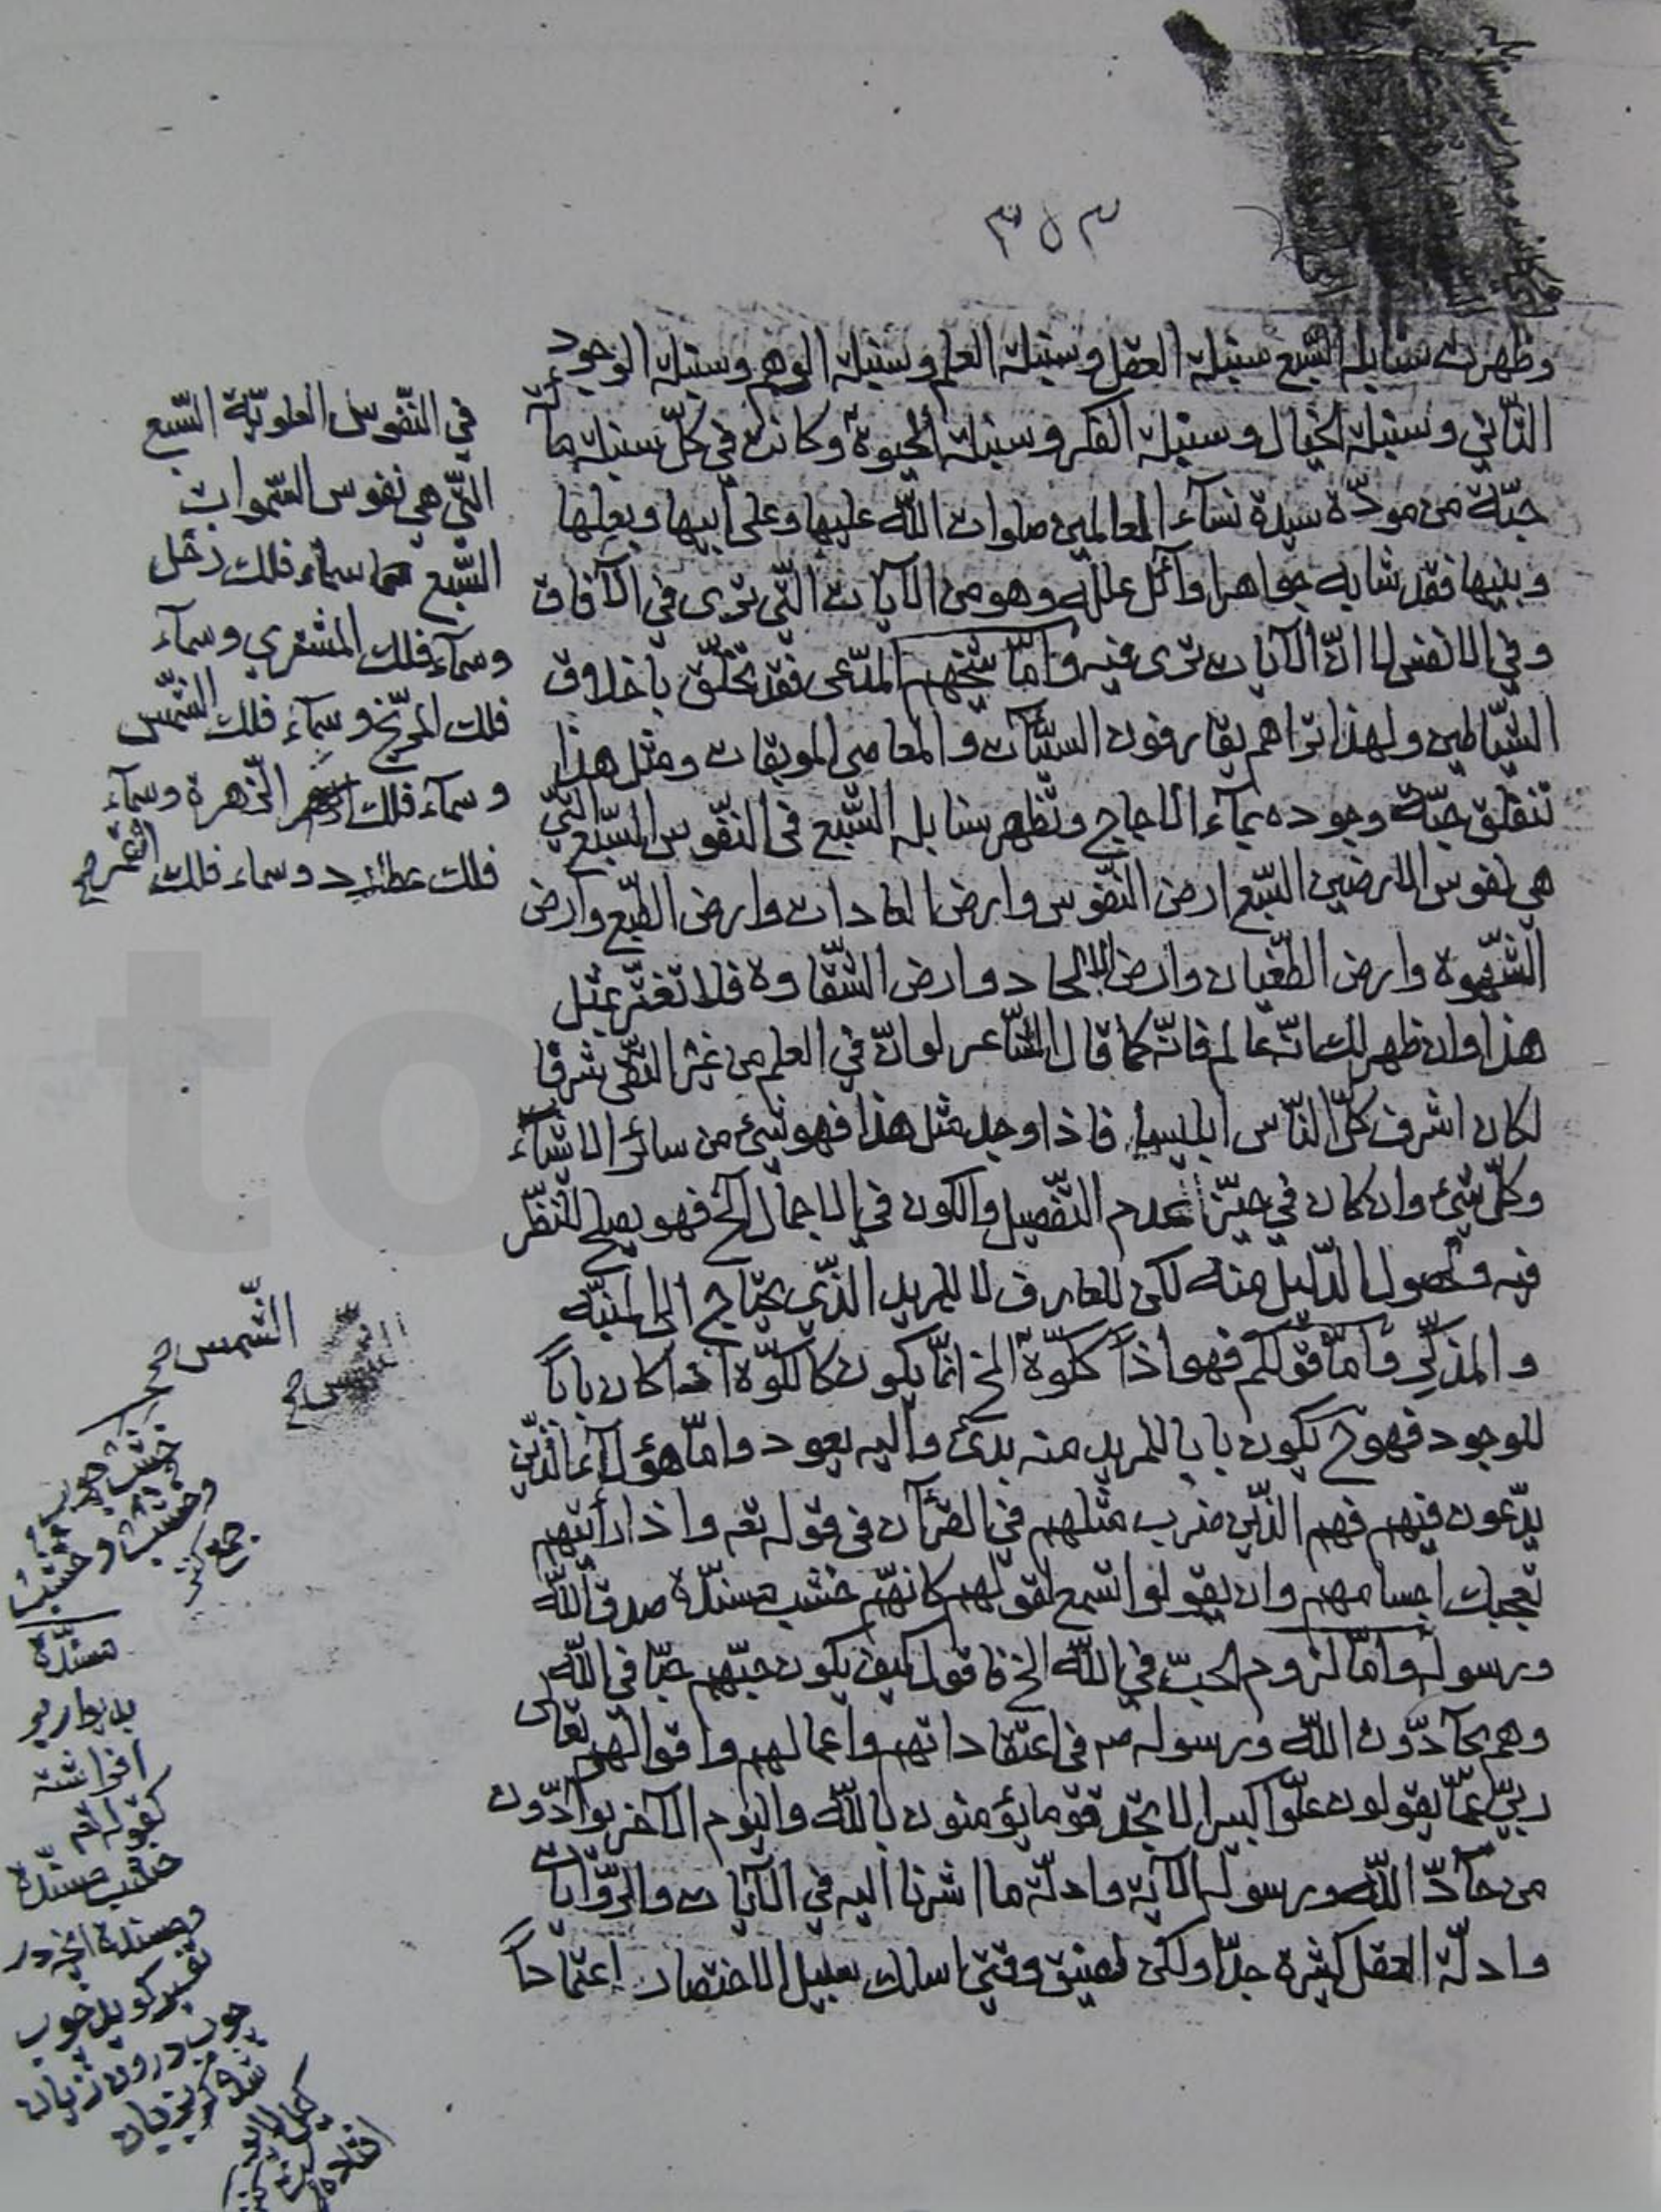 ٣٥٣
وظهرت سنابله السّبع سنبلة العقل وسنبلة العلم وسنبلة الوهم وسنبلة الوجود
الثّاني وسنبلة الخيال وسنبلة الفكر وسنبلة الحيوة وكانت في كلّ سنبلة مأة
حبّة من مودّة سيدة نسآء العالمين صلوات اللّه عليها وعلى ابيها وبعلها
وبنيها فقد شابه جواهر اوآئل علله وهو من الآيات الّتي ترى في الآفاق
وفي الانفس لا انّ الآيات ترى فيه وامّا شخهم المدّعى فقد تخلّق باخلاق
الشّياطين ولهذا تراهم يقارفون السيّآت والمعاصي الموبقات ومثل هذا
تنفلق حبّة وجوده بمآء الاجاج وتظهر سنابله السّبع في النّفوس السّبع الّتي
هي نفوس الارضين السّبع ارض النّفوس وارض العادات وارض الطّبع وارض
الشّهوة وارض الطّغيان وارض الالحاد وارض الشّقاوة فلا تغترّ بمثل
هذا وان ظهر لك انّه عالم فانّه كما قال الشّاعر لو انّ في العلم من غير التّقى شرفا
لكان اشرف كلّ النّاس ابليسا فاذا وجد مثل هذا فهو شئ من سائر الاشيآء
وكلّ شئ وان كان في حيّز عدم التّفصيل والكون في الاجمال الخ فهو يصلح للنّظر
فيه وحصول الدّليل منه لكن للعارف لا للمريد الّذي يحتاج الى المنبّه
والمذكّر وامّا قولكم فهو اذاً ككوّة الخ انّما يكون كالكوّة اذا كان باباً
للوجود فهو ح يكون بابا للمريد منه بدئ واليه يعود وامّا هؤلآء الّذين
يدّعون فيهم فهم الّذين ضرب مثلهم في القرآن في قوله تعه واذا رأيتهم
تعجبك اجسامهم وان يقولوا تسمع لقولهم كانّهم خشب مسنّدة صدق اللّه
ورسوله وامّا لزوم الحبّ في اللّه الخ فاقول كيف يكون حبّهم حبّا في اللّه
وهم يحآدّون اللّه ورسوله صه في اعتقاداتهم واعمالهم واقوالهم تعالى
ربّي عمّا يقولون علوّا كبيرا لا تجد قوما يؤمنون باللّه واليوم الآخر يوآدّون
من حآدّ اللّه ورسوله الآية وادلّة ما اشرنا اليه في الآيات والرّوايات
وادلّة العقل كثيرة جدّا ولكن لضيق وقتي اسلك سبيل الاختصار اعتماداً
في النّفوس العلويّة السّبع
الّتي هي نفوس السّموات
السّبع سماء فلك زحل
وسمآء فلك المشتري وسمآء
فلك المرّيخ وسمآء فلك الشّمس
وسمآء فلك الزّهرة وسمآء
فلك عطارد وسماء فلك القمر صح
الشّمس صح
خشب چوب
وخشب وخشب
جمع
مسنّدة
بديوار
افراشته
كقوله تع
خشب مسنّدة